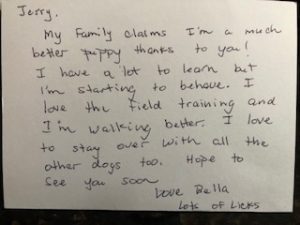 Jerry.
My Family claims I'm a much
better puppy thanks to you!
I have a lot to learn but
I'm starting to behave. I
love the field training and
I'm walking better. I love
to stay over with all the
other dogs too. Hope to
see you soon
Love Bella
Lots of Licks